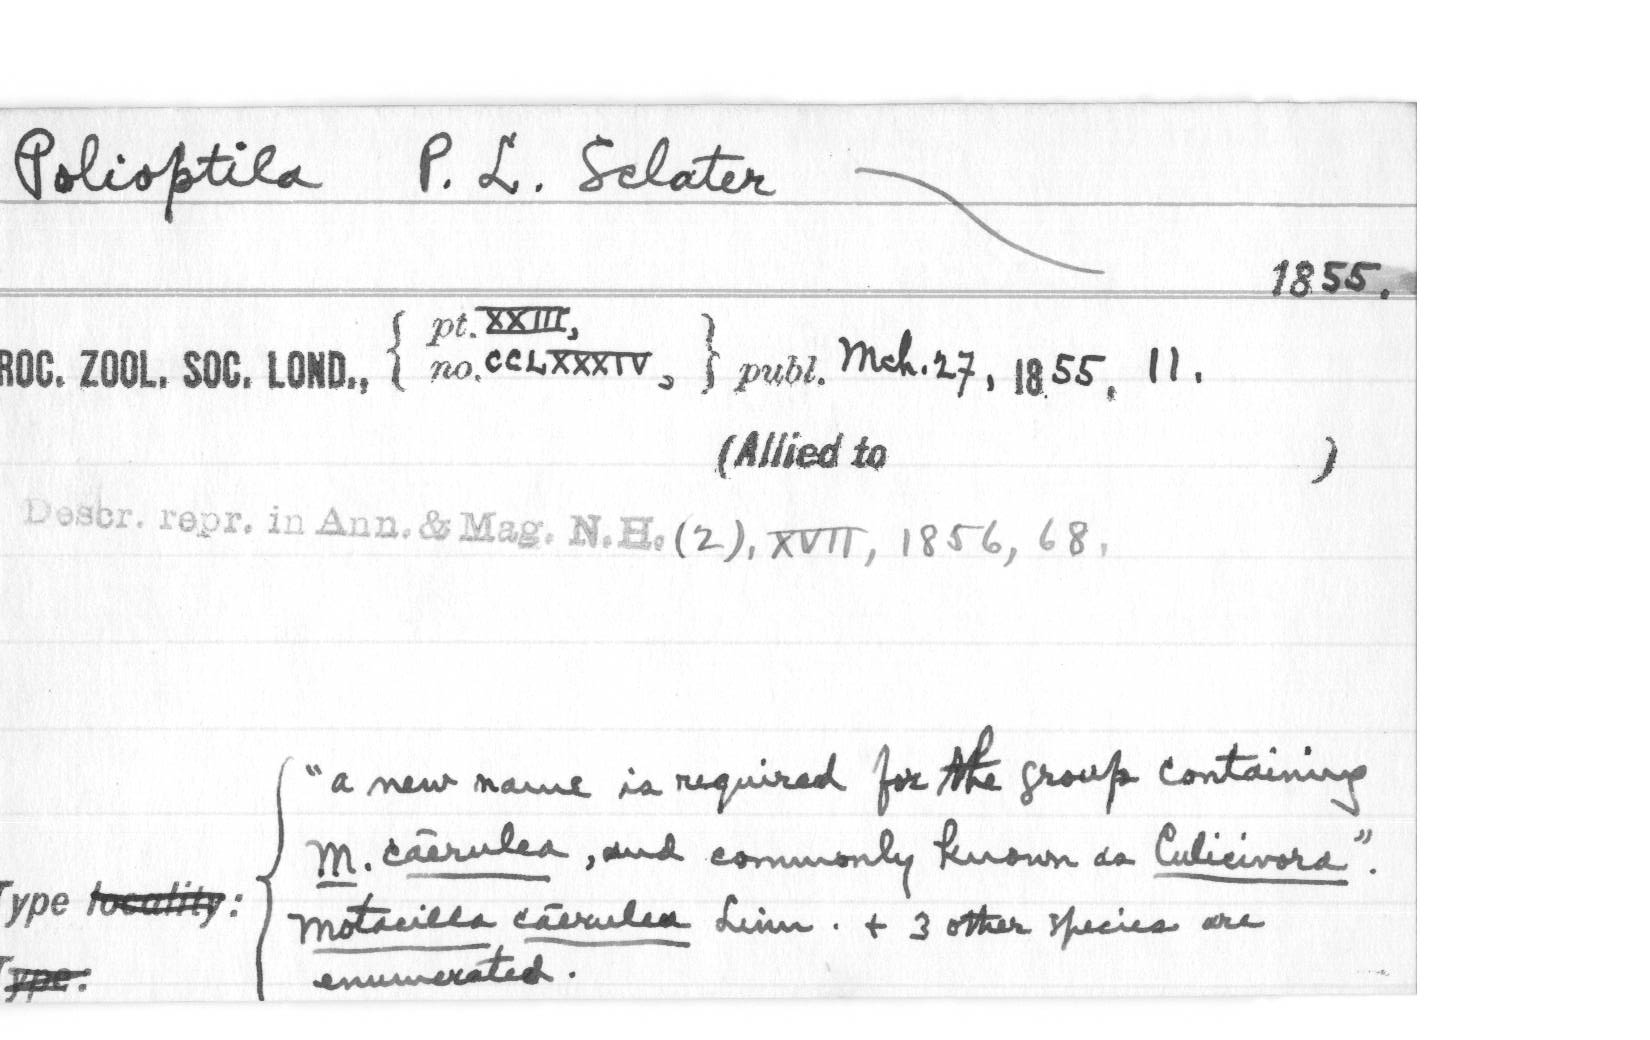 Polioptila P. L. Sclater
1855.
ROC. ZOOL. SOC. LOND., { pt. XXIII, no. CCLXXXIV, } publ. Mch. 27, 1855, 11.
(Allied to )
Descr. repr. in Ann. & Mag. N.H. (2), XVII, 1856, 68.
"a new name is required for the group containing
M. cāerulea, and commonly known as Culicivora".
Type locality:
Motacilla cāerulea Linn. + 3 other species are
enumerated.
Type: